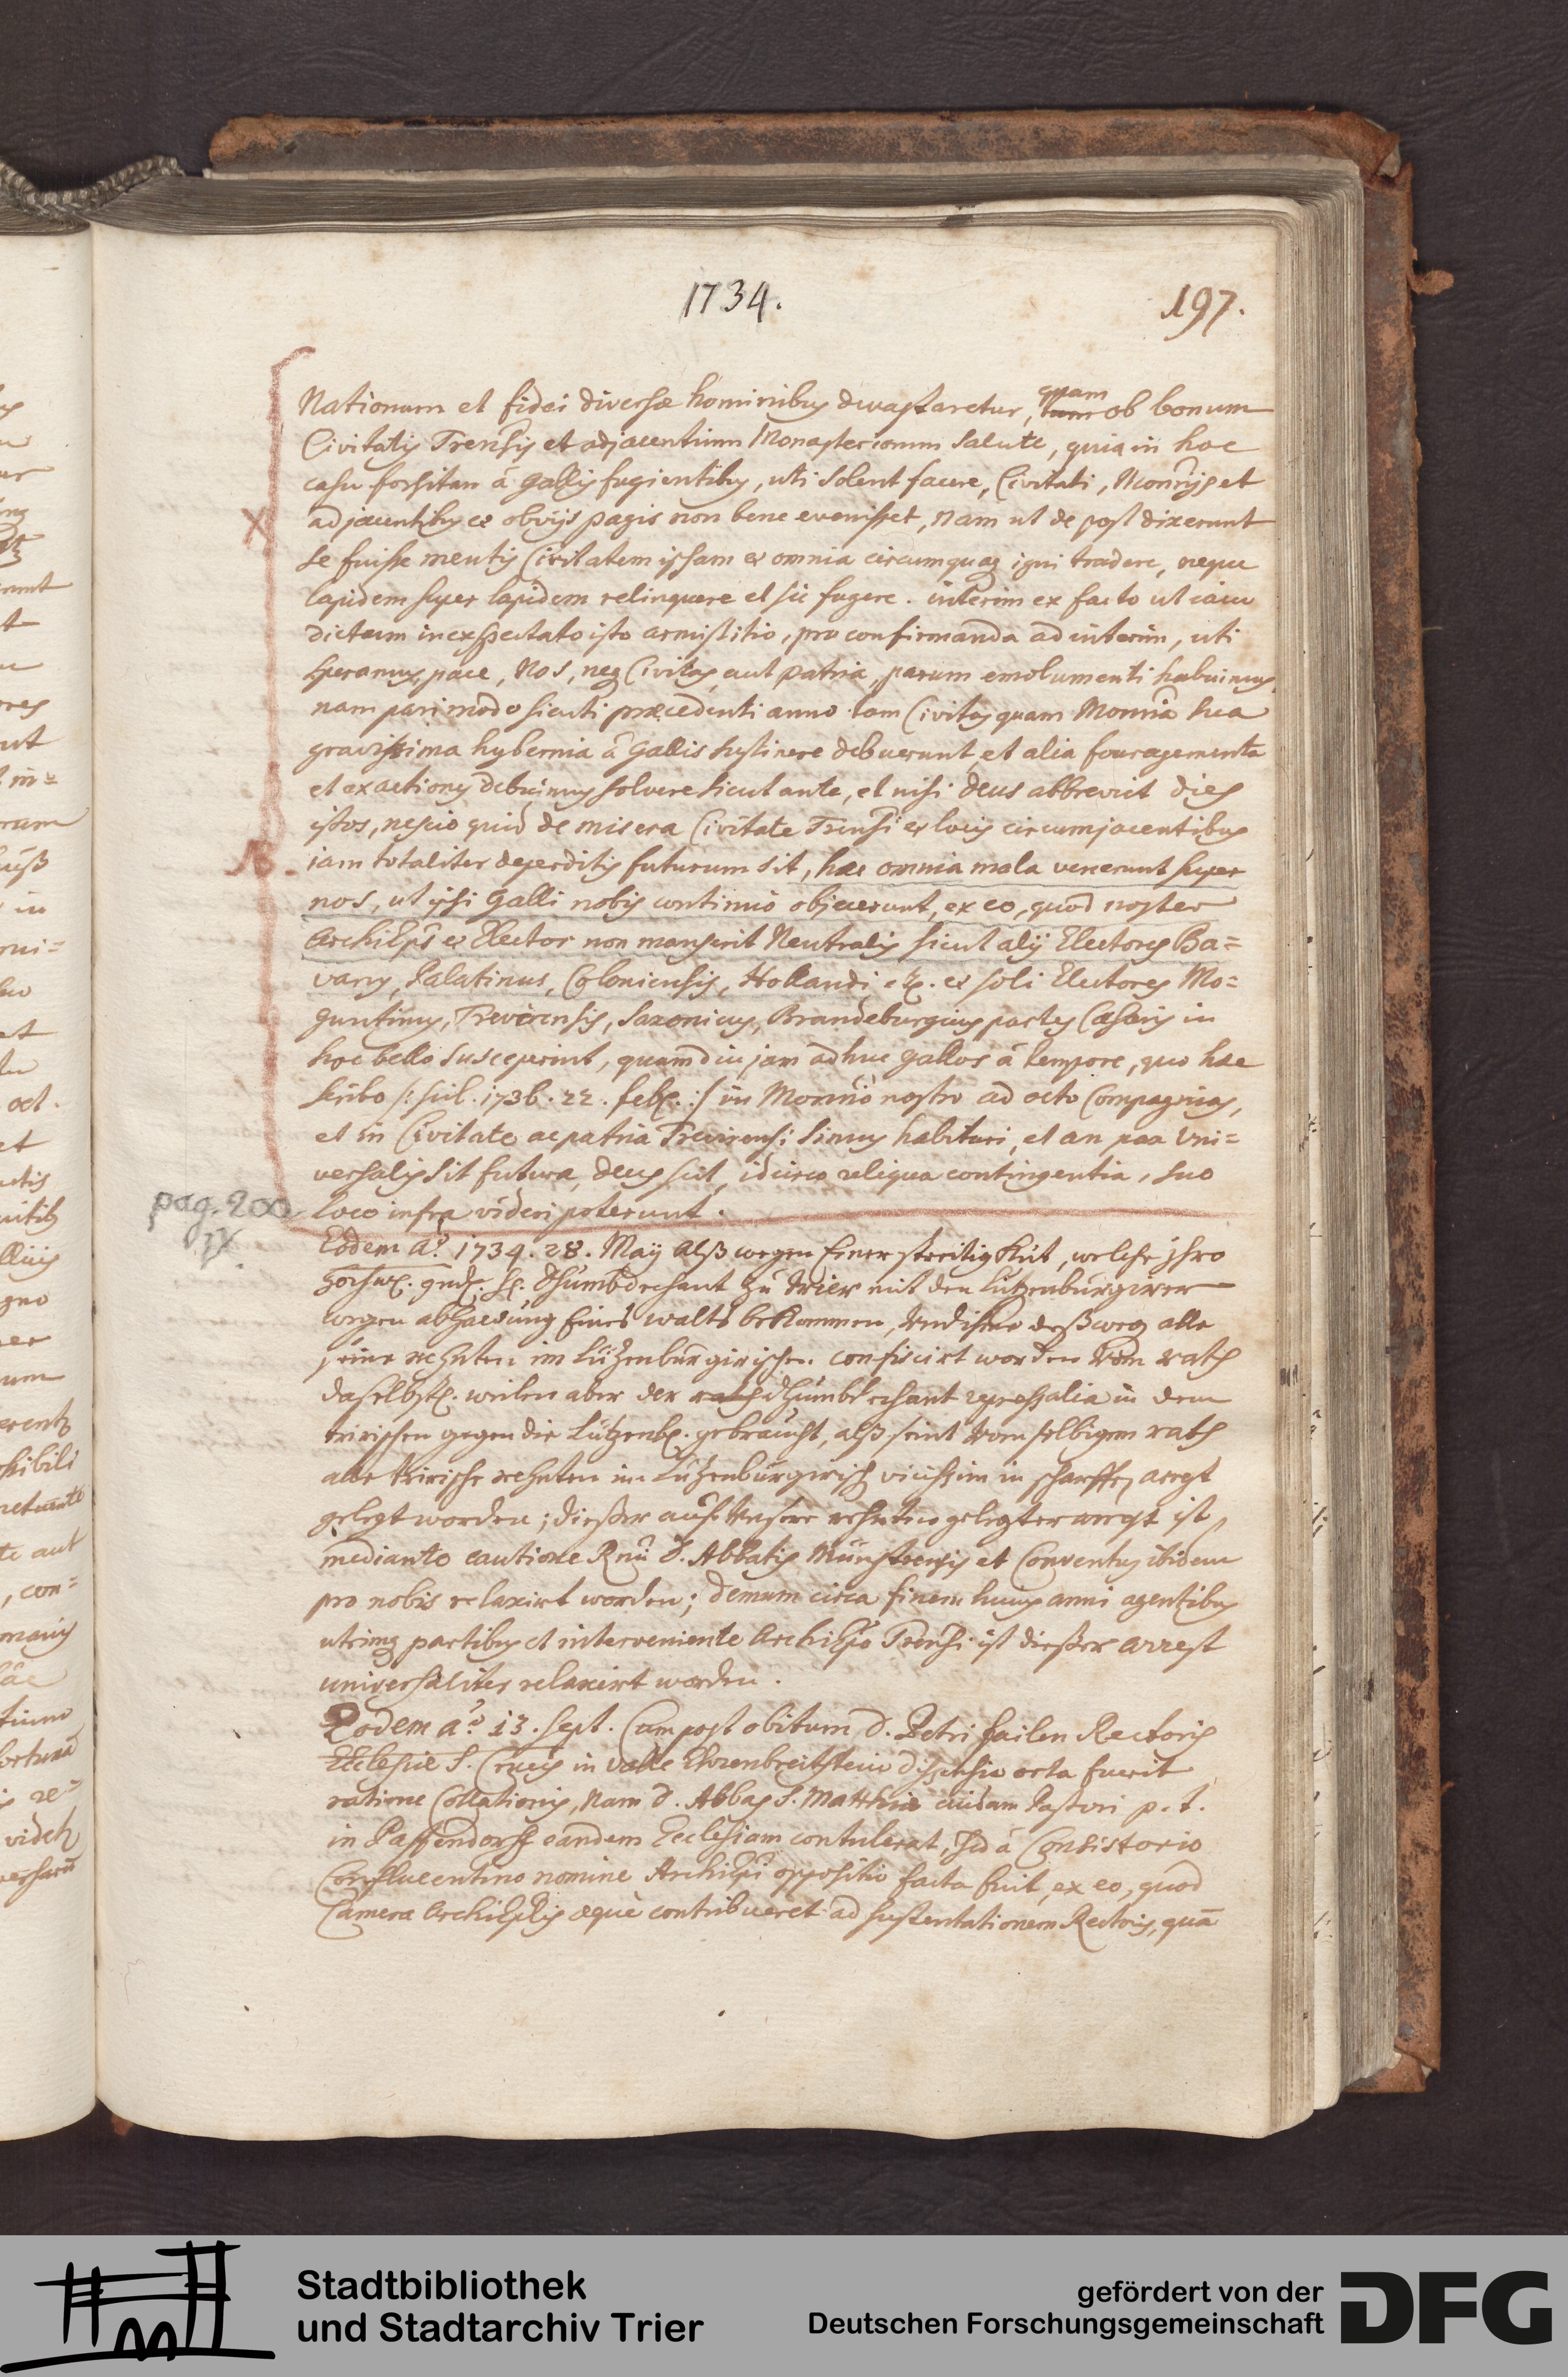 1734.
197.
Nationum et fidei diversæ hominibus devastaretur, quam
tum ob bonum
Civitatis Trensis et adjacentium Monasteriorum Salute, quia in hoc
casu forsitan â Gallis fugientibus, uti solent facere, Civitati, Monrijs et
adjacentibus et obvijs pagis non bene evenisset, nam ut de post dixerunt
se fuisse mentis Civitatem ipsam et omnia circumquaq igni tradere, neque
lapidem super lapidem relinquere et sic fugere. interim ex facto ut iam
dictum inexspectato isto armistitio, pro confirmanda ad interim, uti
speramus, pace, Nos, neq Civitas, aut patria, parum emolumenti habuimus,
nam pari modo sicuti præcedenti anno tam Civitas quam Monria sua
gravissima hybernia â Gallis sustinere debuerunt, et alia fouragementa
et exactiones debuimus solvere sicut ante, et nisi Deus abbreviet dies
istos, nescio quid de misera Civitate Trensi et locis circumjacentibus
iam totaliter deperditis futurum sit, hæc omnia mala venerunt super
nos, ut ipsi Galli nobis continuò objecerunt, ex eo, quod noster
Archiēps et Elector non manserit Neutralis sicut alij Electores Ba=
varus, Palatinus, Coloniensis, Hollandi etc. et soli Electores Mo=
guntinus, Trevirensis, Saxonicus, Brandeburgius partes Cæsaris in
hoc bello susceperint, quamdiu jam adhuc Gallos â tempore, quo hæc
scribo /: scil. 1736. 22. feb. :/ in Monrio nostro ad octo Compagnias,
et in Civitate ac patria Trevirensi simus habituri, et an pax Uni=
versalis sit futura, Deus scit, idcirco reliqua contingentia, suo
loco infra videri poterunt.
pag. 200
Eodem aº. 1734. 28. Maij alß wegen Einer streitigkeit, welche jhro
hochw. gnd. H. Dhumbdechant zu trier mit den Lutzenburgirer
wegen abhawung Eines walts bekommen, undihme deßweg alle
seine zehnten im Lützenburgirischen confiscirt worden vom rath
daselbst. weilen aber der rath dhumbdechant repressalia in dem
tririschen gegen die Lützenb. gebraucht, alß seint vom selbigem rath
alle trirische zehnten im Lützenburgirisch vicissim in scharffen arest
gelegt worden; dießer auf unsere zehnten gelegter arrest ist
mediante cautione Rmi D. Abbatis Münsterensis et Conventus ibidem
pro nobis relaxirt worden; demum circa finem huius anni agentibus
utrimq partibus et interveniente Archiēpo Trensi ist dießer arrest
universaliter relaxirt worden.
Eodem aº. 13. Sept. Cum post obitum D. Petri failen Rectoris
Ecclesiæ S. Crucis in valle Ehrenbreitstein dissensio orta fuerit
ratione Collationis, nam D. Abbas S. Matthiæ cuidam Pastori p. t.
in Paffendorff eandem Ecclesiam contulerat, sed â Consistorio
Confluentino nomine Archiepi oppositio facta fuit, ex eo, quod
Camera Archieplis æquè contribueret ad sustentationem Rectoris, quā
Stadtbibliothek
und Stadtarchiv Trier
gefördert von der
Deutschen Forschungsgemeinschaft
DFG